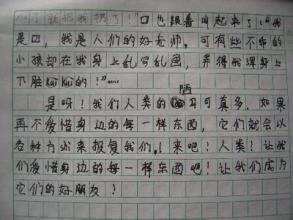 就把我掰了！口也跟着叫起来了："我
是口，我是人们的好老师，可有些不乖的
小孩却在我身上乱写乱画，弄得我浑身上
下脏 的！"……
陋
是呀！我们人类的 习可真多，如果
再不爱惜身边的每一样东西，它们就会以
各种方式来报复我们。来吧！人类！让我
们爱惜身边的每一样东西吧！让我们成为
它们的好朋友！